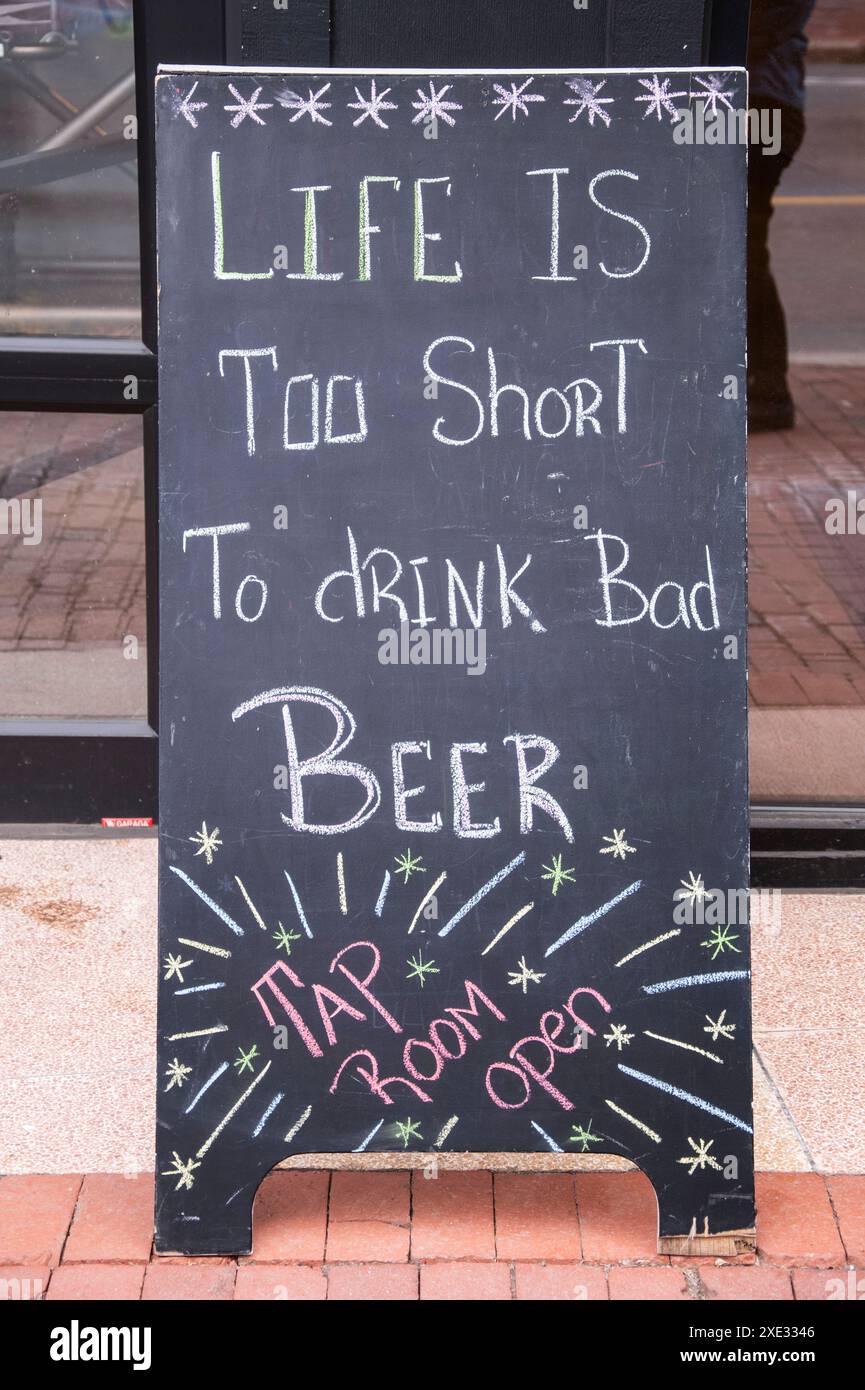 LIFE IS
Too ShorT
To dRINK Bad
BEER
TAP
Room open
GARAGA
alamy
Image ID: 2XE3346
www.alamy.com